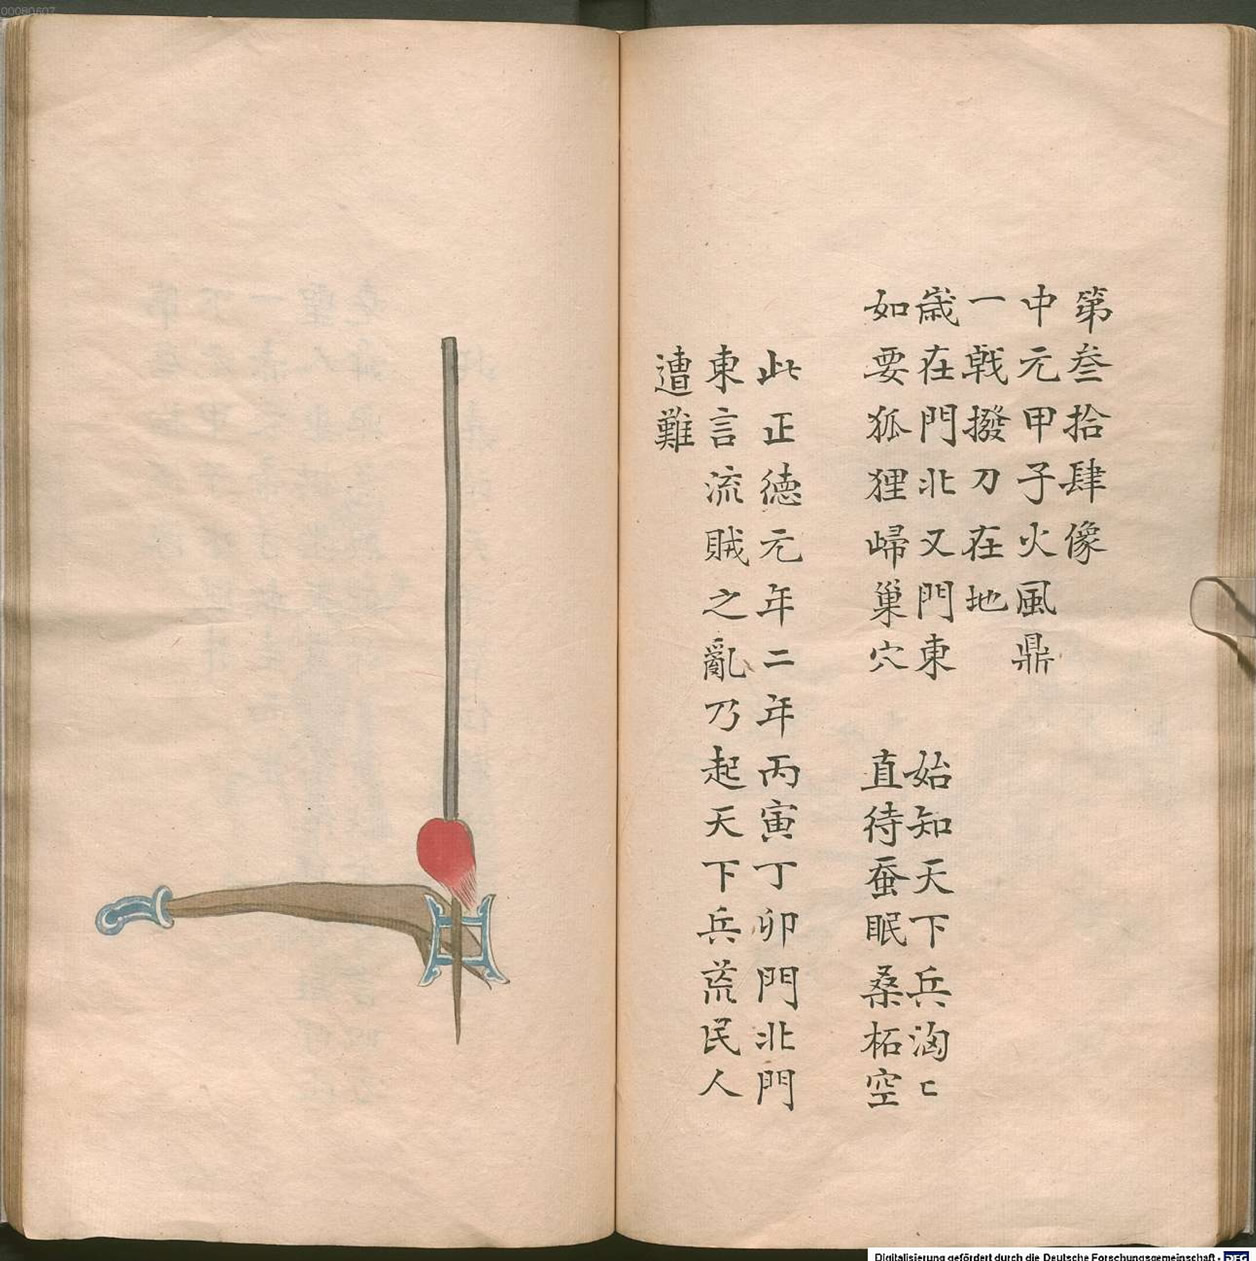 00080607
第叁拾肆像
中元甲子火風鼎
一戟撥刀在地
歲在門北又門東　始知天下兵洶〻
如要狐狸歸巢穴　直待蚕眠桑柘空
此正德元年二年丙寅丁卯門北門
東言流賊之亂乃起天下兵荒民人
遭難
Digitalisierung gefördert durch die Deutsche Forschungsgemeinschaft - DFG